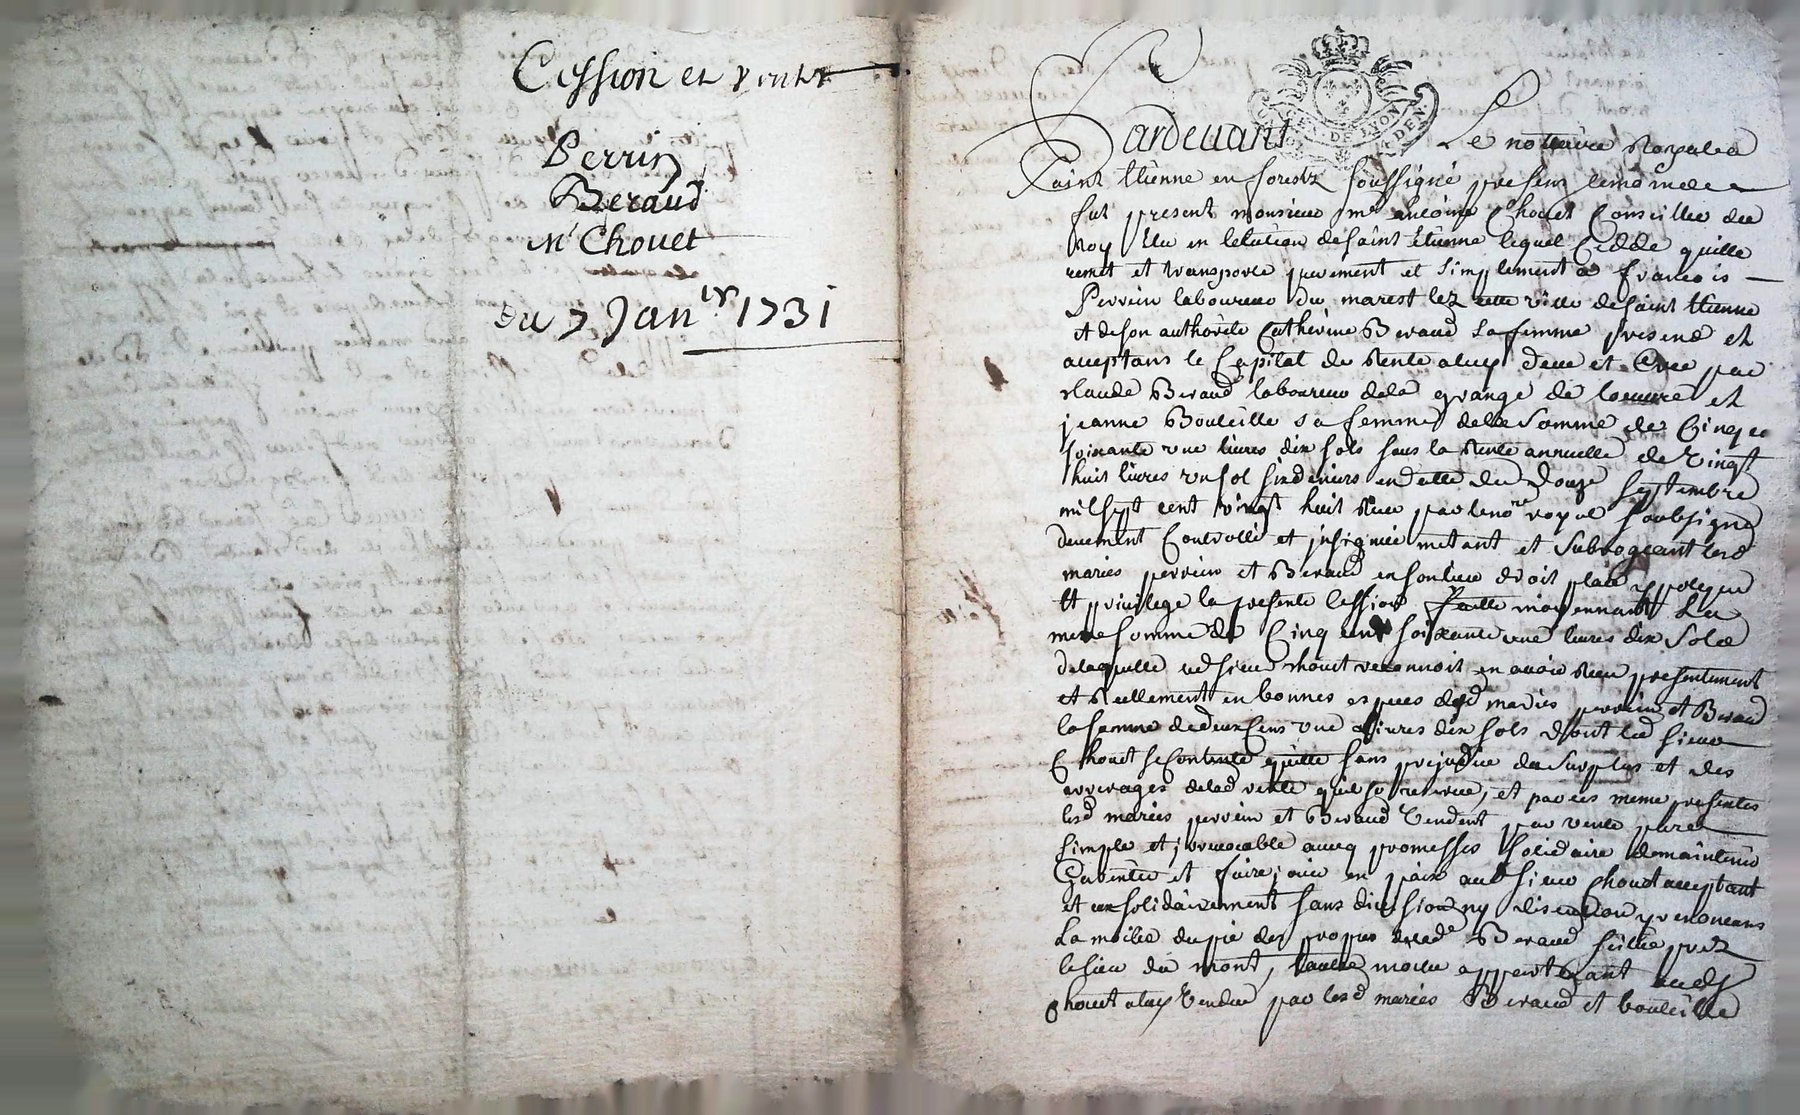 Cession et vente
Perrin
Beraud
Mr Chouet
du 7 Janier 1731
GEN. DE LYON
Pardevant Le nottaire Royal a
Saint Etienne en forestz soussigné presens
fut present monsieur me antoine Chouet Conseiller du
Roy Elu en lelection de saint Etienne lequel Cedde quitte
remet et transporte purement et simplement a francois
Perrin laboureur du marest lez cette ville de saint Etienne
et de son authorité Catherine Beraud sa femme presens et
acceptans le Capital de Rente a luy deue et Cree par
claude Beraud laboureur de la grange de et
jeanne Bouteille sa femme de la somme de Cinq ce
soixante une livres dix sols sous la Rente annuelle de vingt
huit livres un sol six deniers en datte du Douze septembre
mil sept cent vingt huit Receu par le nore royal soubsigné
deuement Controllé et insignué metant et subrogeant lesd
mariés perrin et Beraud en son lieu droit place ypoteque
et privilege la presente Cession faitte moyennant La
meme somme de Cinq cent soixante une livres dix sols
de laquelle led sieur chouet reconnoit en avoir Receu presentement
et Reellement en bonnes especes desd mariés perrin et Beraud
la somme de deux Cens une livres dix sols dont led sieur
Chouet se Contente quitte sans prejudice du surplus et des
arrerages de lad rente qu'il se reserve, et par ces meme presentes
lesd mariés perrin et Beraud vendent par vente pure
simple et irrevocable avecq promesses solidaire de maintenir
Garentir et faire jouir en paix aud sieur Chouet acceptant
et ce solidairement sans division ny discution y renoncans
La moitié du pré des propres de lad Beraud située prez
le lieu du mont, lautre moitié appartenant aud sr
Chouet a luy vendue par lesd mariés Beraud et bouteille